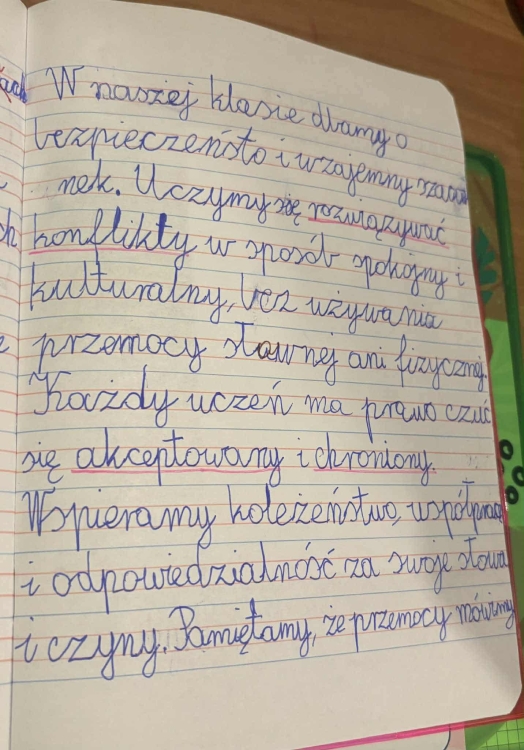 W naszej klasie dbamy o
bezpieczeństo i wzajemny szacu
nek. Uczymy się rozwiązywać
konflikty w sposób spokojny i
kulturalny, bez używania
przemocy słownej ani fizycznej.
Każdy uczeń ma prawo czuć
się akceptowany i chroniony.
Wspieramy koleżeństwo, współpracę
i odpowiedzialność za swoje słowa
i czyny. Pamiętamy, że przemocy mówimy